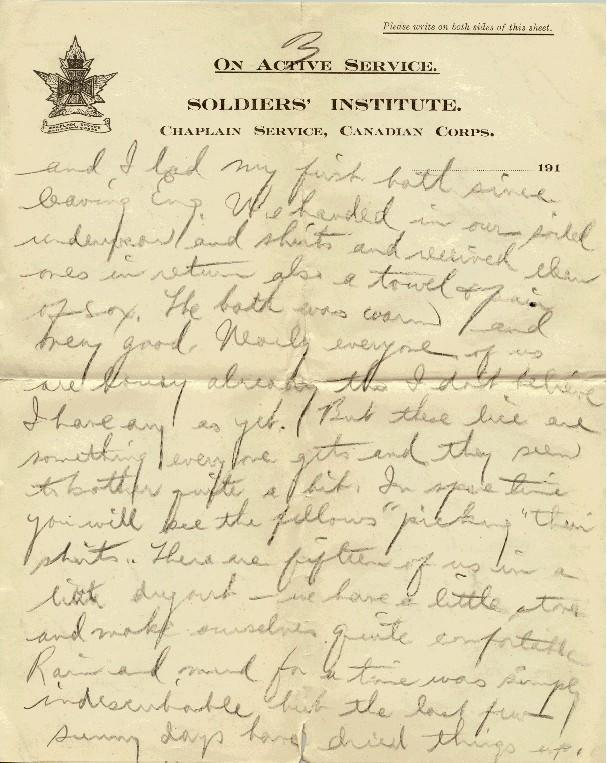 Please write on both sides of this sheet.
3
ON ACTIVE SERVICE.
SOLDIERS' INSTITUTE.
CHAPLAIN SERVICE, CANADIAN CORPS.
191
and I had my first bath since
leaving Eng. We handed in our soiled
underwear and shirts and received clean
ones in return also a towel & pair
of sox. The bath was warm and
very good. Nearly everyone of us
are lousy already tho I dont believe
I have any as yet. But these lice are
something everyone gets and they seem
to bother quite a bit. In spare time
you will see the fellows "picking" their
shirts.. There are fifteen of us in a
little dugout - we have a little stove
and make ourselves quite comfortable
Rain and mud for a time was simply
indescribable but the last few
sunny days have dried things up.